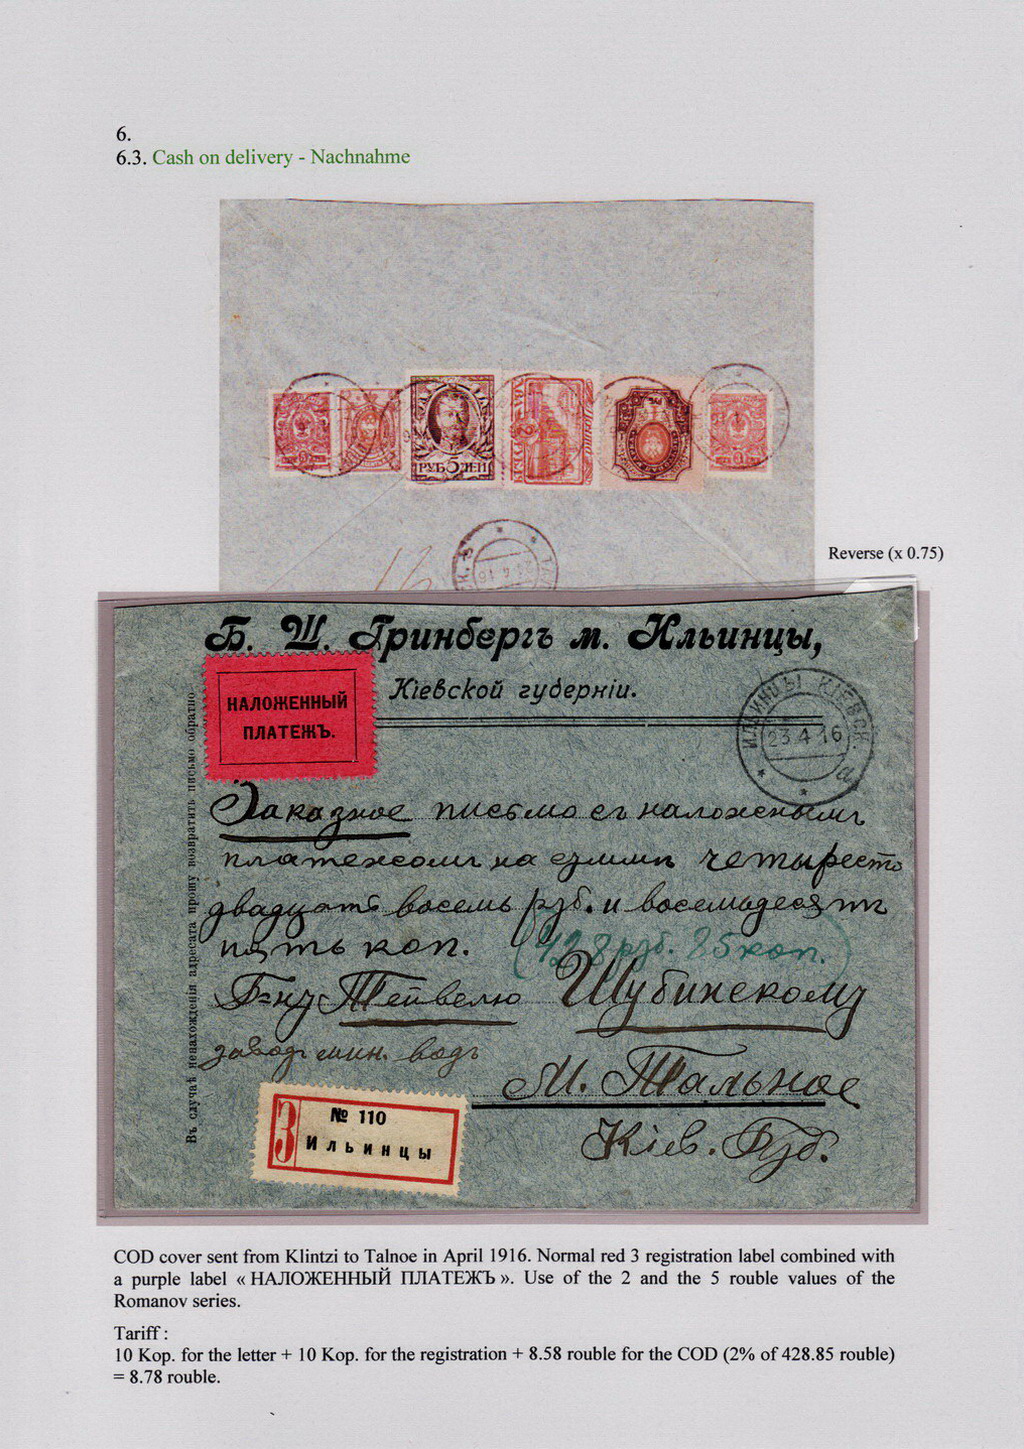 6.
6.3. Cash on delivery - Nachnahme
РУБ 5 ЛЕЙ
Reverse (x 0.75)
Б. Ш. Гринбергъ м. Ильинцы,
Кіевской губерніи.
НАЛОЖЕННЫЙ
ПЛАТЕЖЪ.
ИЛЬИНЦЫ КІЕВСК.
23 4 16
a
Въ случаѣ ненахожденія адресата прошу возвратить письмо обратно
Заказное письмо съ наложенымъ
платежомъ на сумму четыреста
двадцать восемь руб. и восемьдесятъ
пять коп. (428 руб. 85 коп.)
Г=ну Тейвелю Шубинскому
завод мин. водъ
М. Тальное
Кіев. Губ.
З
№ 110
Ильинцы
COD cover sent from Klintzi to Talnoe in April 1916. Normal red 3 registration label combined with
a purple label « НАЛОЖЕННЫЙ ПЛАТЕЖЪ ». Use of the 2 and the 5 rouble values of the
Romanov series.
Tariff :
10 Kop. for the letter + 10 Kop. for the registration + 8.58 rouble for the COD (2% of 428.85 rouble)
= 8.78 rouble.